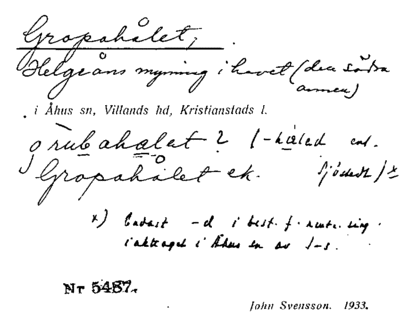 Gropahålet,
Helgeåns mynning i havet (den södra
armen)
i Åhus sn, Villands hd, Kristianstads l.
grubahalat ? (-hålad enl.
Gropahålet ek. Sjöstedt) x
x) Endast -d i best. f. neutr. sing.
iakttaget i Åhus sn av J-s.
Nr 5487.
John Svensson. 1933.